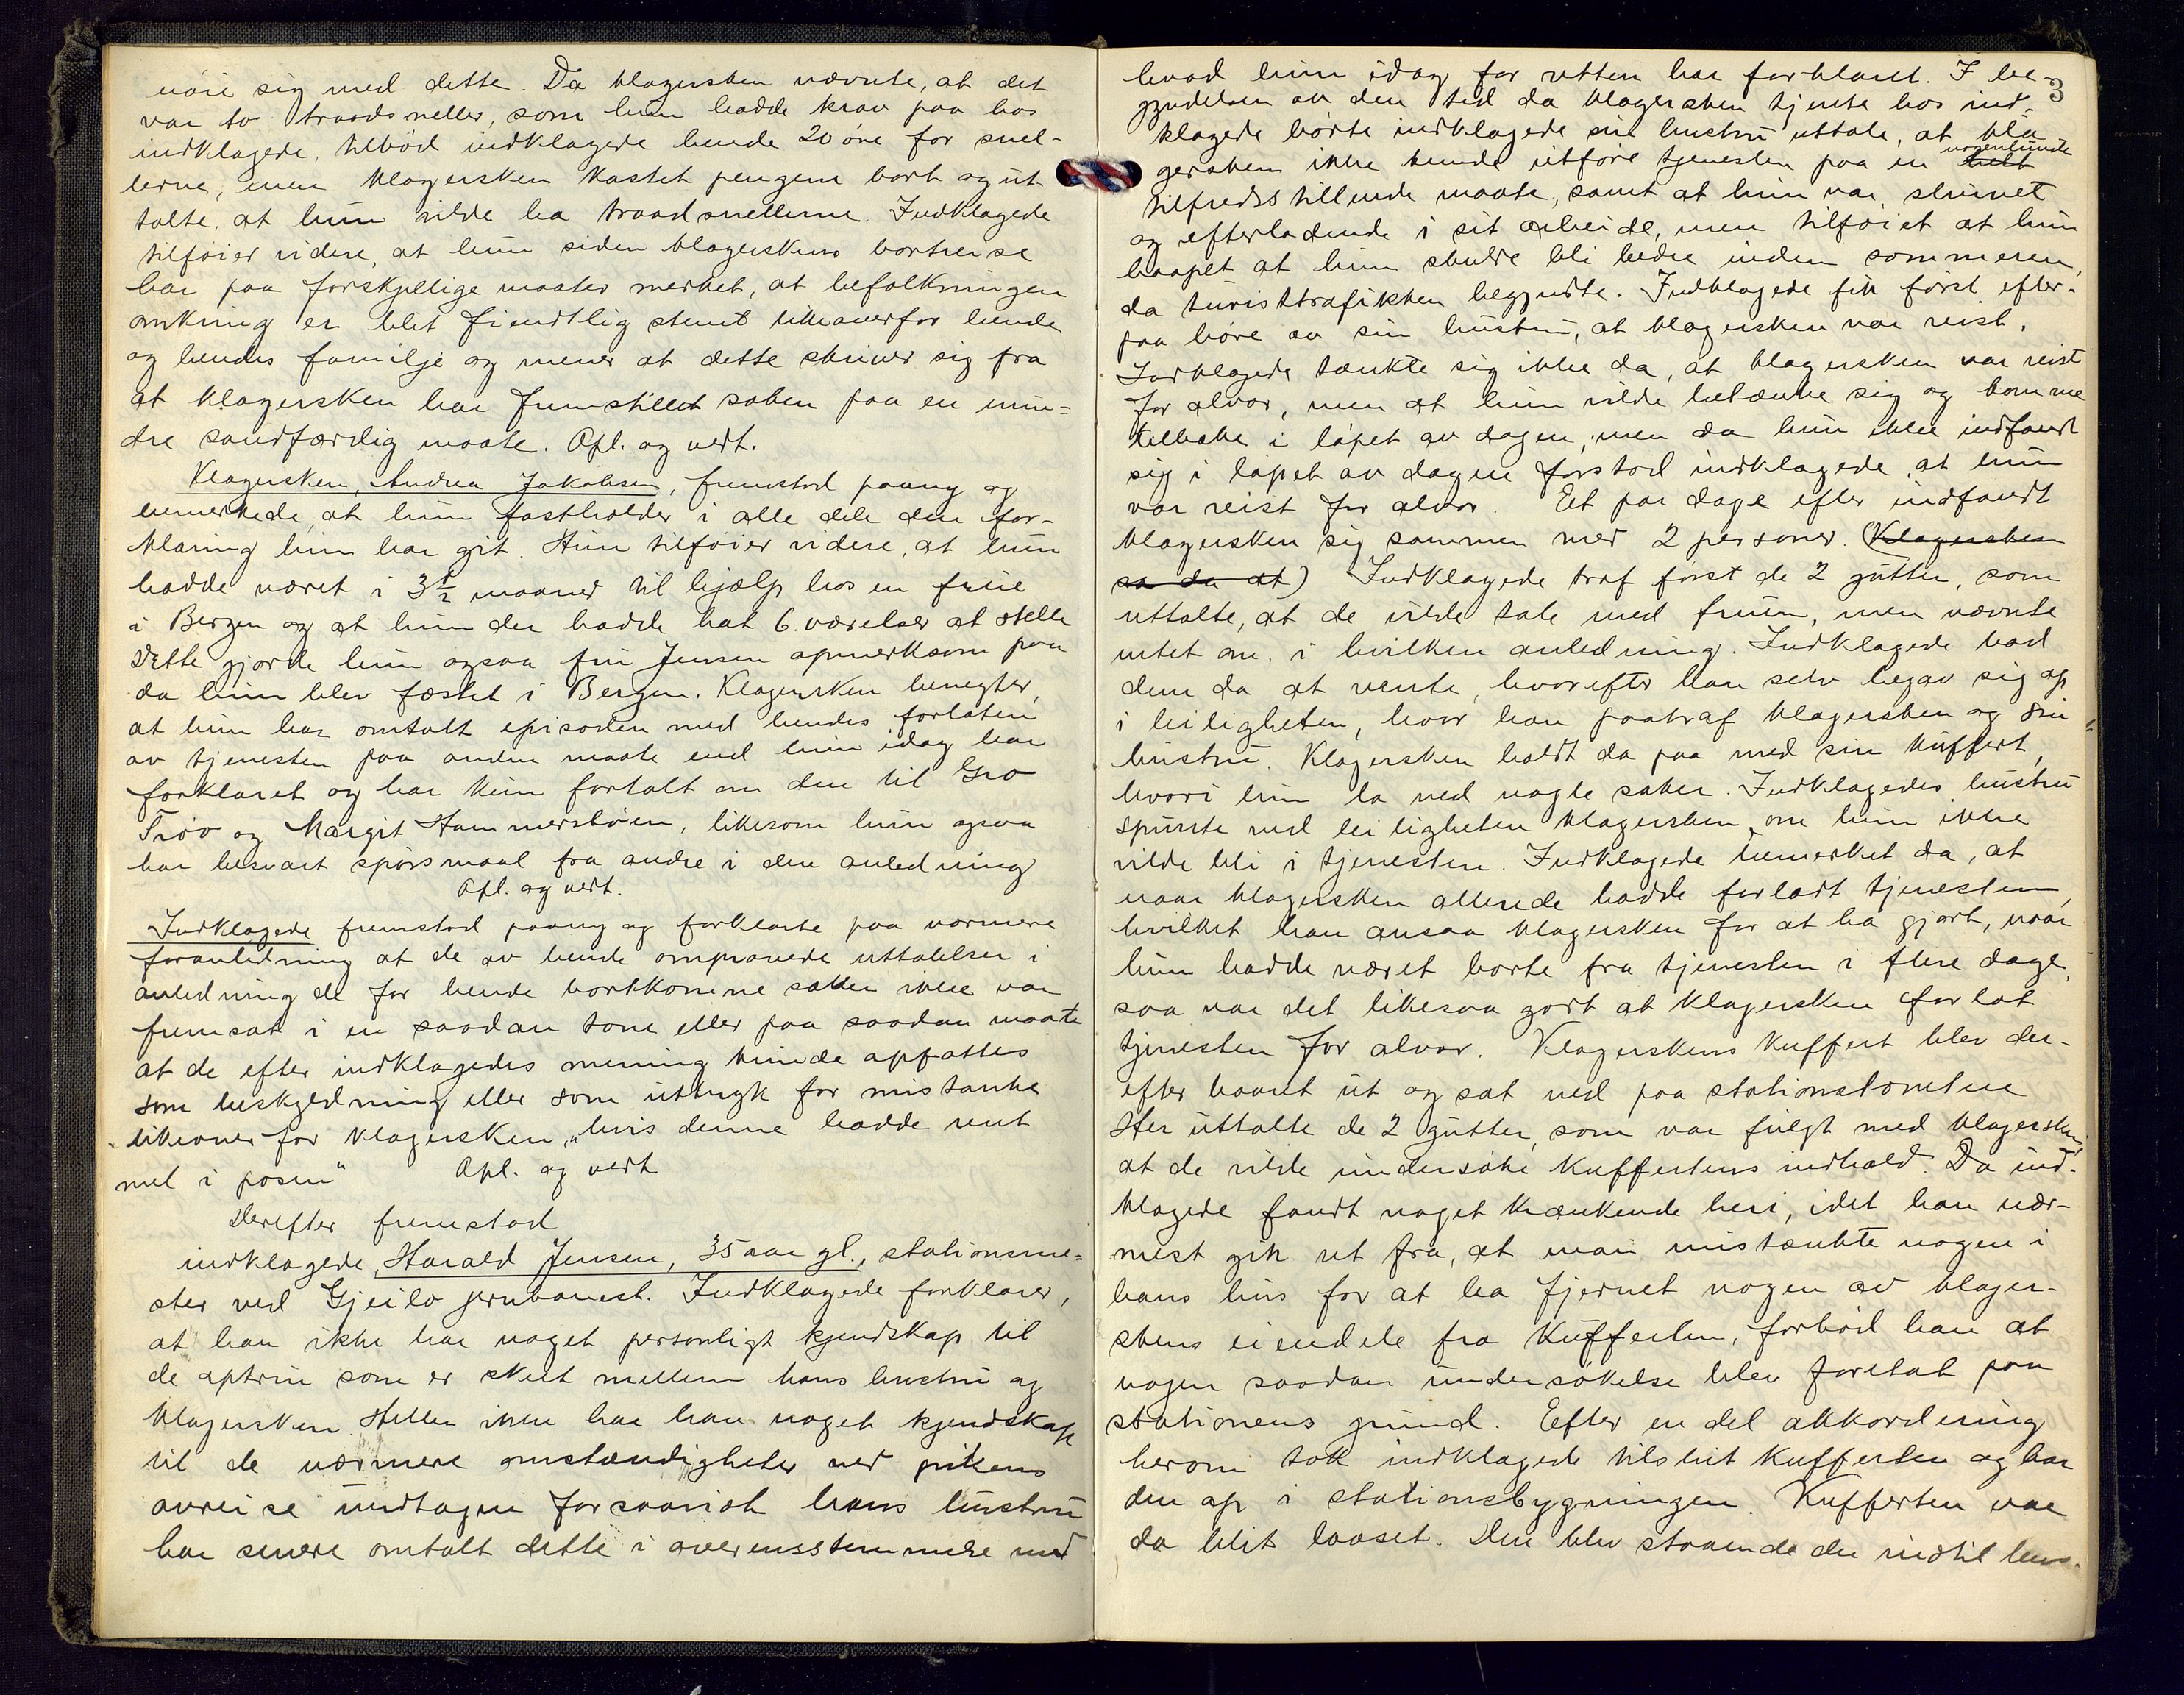 nöie sig med dette. Da klagersken nævnte, at det
var to traadsneller, som hun hadde krav paa hos
indklagede, tilböd indklagede hende 20 öre for snel-
lerne, men klagersken kastet pengene bort og ut-
talte, at hun vilde ha traadsnellerne. Indklagede
tilföier videre, at hun siden klagerskens bortreise
har paa forskjellige maater merket, at befolkningen
omkring er blit fiendtlig stemt likeoverfor hende
og hendes familje og mener at dette skriver sig fra
at klagersken har fremstillet saken paa en min-
dre sandfærdig maate. Opl. og vedt.
Klagersken, Andrea Jakobsen, fremstod paany og
bemerkede, at hun fastholder i alle dele den for-
klaring hun har git. Hun tilföier videre, at hun
hadde været i 3½ maaned til hjælp hos en frue
i Bergen og at hun der hadde hat 6 værelser at stelle
Dette gjorde hun ogsaa fru Jensen opmerksom paa
da hun blev fæstet i Bergen. Klagersken benegter,
at hun har omtalt episoden med hendes forlaten
av tjenesten paa anden maate end hun idag har
forklaret og har kun fortalt om den til Gro
Tröo og Margit Hammersböen, likesom hun ogsaa
har besvart spörsmaal fra andre i den anledning
Opl. og vedt.
Indklagede fremstod paany og forklarte paa nærmere
foranledning at de av hende omprövede uttalelser i
anledning de for hende bortkomne saker ikke var
fremsat i en saadan tone eller paa saadan maate
at de efter indklagedes mening kunde opfattes
som beskyldning eller som uttryk for mistanke
likeover for klagersken „hvis denne hadde rent
mel i posen“ Opl. og vedt.
Derefter fremstod
indklagede, Harald Jensen, 35 aar gl., stationsme-
ster ved Gjeilo jernbanest. Indklagede forklarer,
at han ikke har noget personligt kjendskap til
de optrin som er skeet mellem hans hustru og
klagersken. Heller ikke har han noget kjendskap
til de nærmere omstændigheter ved pikens
avreise undtagen forsaavidt hans hustru
har senere omtalt dette i overensstemmelse med
3
hvad hun idag for retten har forklaret. I be-
gyndelsen av den tid da klagersken tjente hos ind-
klagede hörte indklagede sin hustru uttale, at kla-
gersken ikke kunde utföre tjenesten paa en helt nogenlunde
tilfredsstillende maate, samt at hun var skrinet
og efterladende i sit arbeide, men tilföiet at hun
haapet at hun skulde bli bedre inden sommeren,
da turisttrafikken begyndte. Indklagede fik först efter-
paa höre av sin hustru, at klagersken var reist.
Indklagede tænkte sig ikke da, at klagersken var reist
for alvor, men at hun vilde betænke sig og komme
tilbake i löpet av dagen, men da hun ikke indfandt
sig i löpet av dagen forstod indklagede at hun
var reist for alvor. Et par dage efter indfandt
klagersken sig sammen med 2 personer. (Klagersken
sa da at) Indklagede traf först de 2 gutter, som
uttalte, at de vilde tale med fruen, men nævnte
intet om i hvilken anledning. Indklagede bad
dem da at vente, hvorefter han selv begav sig op
i leiligheten, hvor han paatraf klagersken og sin
hustru. Klagersken holdt da paa med sin kuffert,
hvori hun la ned nogle saker. Indklagedes hustru
spurte ved leiligheten klagersken, om hun ikke
vilde bli i tjenesten. Indklagede bemerket da, at
naar klagersken allerede hadde forladt tjenesten,
hvilket han ansaa klagersken for at ha gjort, naar
hun hadde været borte fra tjenesten i flere dage,
saa var det likesaa godt at klagersken forlot
tjenesten for alvor. Klagerskens kuffert blev der-
efter baaret ut og sat ned paa stationstomten
Her uttalte de 2 gutter, som var fulgt med klagersken,
at de vilde undersöke kuffertens indhold. Da ind-
klagede fandt noget krænkende heri, idet han nær-
mest gik ut fra, at man mistænkte nogen i
hans hus for at ha fjernet nogen av klager-
skens eiendele fra kufferten, forböd han at
nogen saadan undersökelse blev foretat paa
stationens grund. Efter en del akkordering
herom tok indklagede tilslut kufferten og bar
den op i stationsbygningen. Kufferten var
da blit laaset. Den blev staaende der indtil